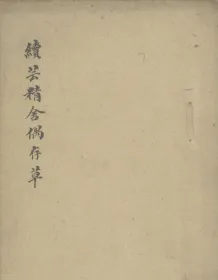 續芸精舍偶存草